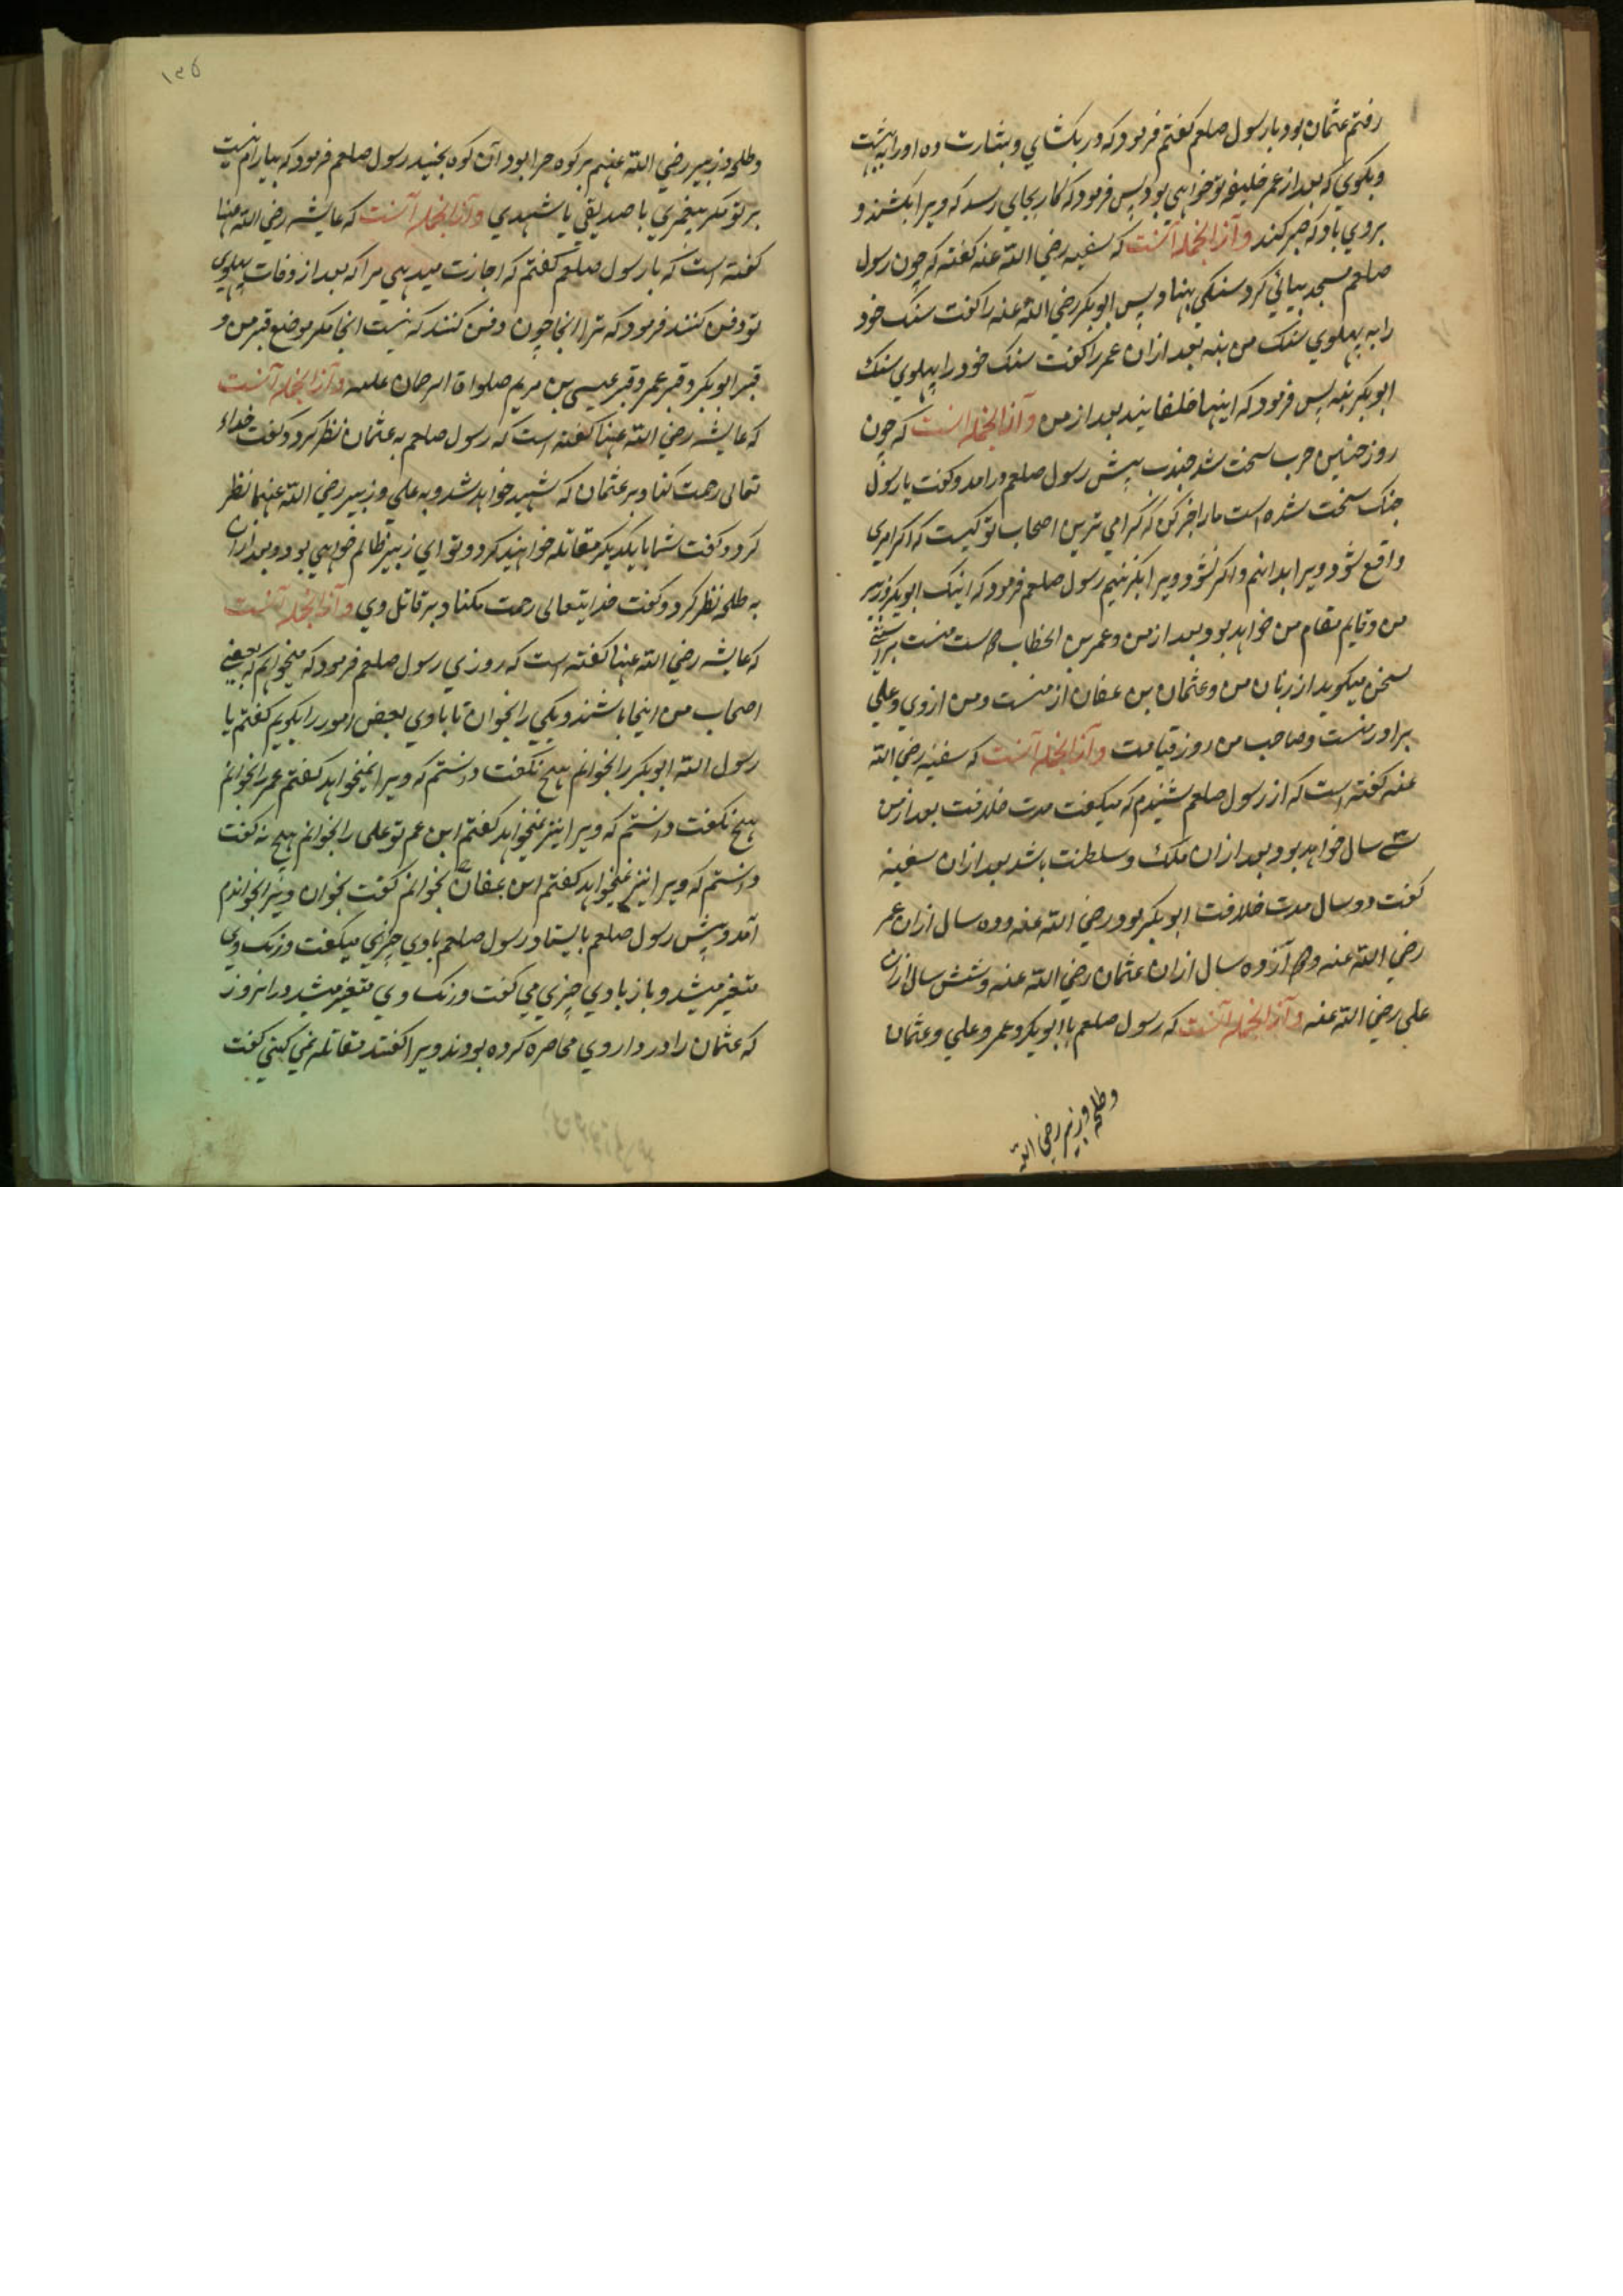 رفتم عثمان بود با رسول صلعم گفتم فرمود که در بکشای و بشارت ده او را به بهشت
و بگوی که بعد از عمر خلیفه تو خواهی بود پس فرمود که کار بجایی رسد که ویرا بکشند و
بروی باد که صبر کند و از آنجمله آنست که سفینه رضی الله عنه گفته که چون رسول
صلعم مسجد بنیانی کرد سنکی بنهاد پس ابوبکر رضی الله عنه را گفت سنک خود
را به پهلوی سنک من بنه بعد ازان عمر را گفت سنک خود را پهلوی سنک
ابوبکر بنه پس فرمود که اینها خلفایند بعد از من و از آنجمله آنست که چون
روز حنین حرب سخت شد جندب پیش رسول صلعم درامد و گفت یا رسول
جنک سخت شده است ما را خبر کن که گرامی ترین اصحاب تو کیست که اگر امری
واقع شود ویرا بدانیم و اگر نشود ویرا بگزینیم رسول صلعم فرمود که اینک ابوبکر وزیر
من و قایم مقام من خواهد بود بعد از من و عمر بن الخطاب دوست منست براستی
سخن میگوید از زبان من و عثمان بن عفان از منست و من از وی و علی
برادر منست و صاحب من روز قیامت و از آنجمله آنست که سفینه رضی الله
عنه گفته است که از رسول صلعم شنیدم که میگفت مدت خلافت بعد از من
سی سال خواهد بود بعد ازان ملک و سلطنت باشد بعد ازان سفینه
گفت دو سال مدت خلافت ابوبکر بود رضی الله عنه و ده سال ازان عمر
رضی الله عنه و دوازده سال ازان عثمان رضی الله عنه و شش سال ازان
علی رضی الله عنه و از آنجمله آنست که رسول صلعم با ابوبکر و عمر و علی و عثمان
وطلحه وزبیر رضی الله
۱۳۵
و طلحه و زبیر رضی الله عنهم بر کوه حرا بود آن کوه بجنبید رسول صلعم فرمود که بیارام نیست
بر تو مگر پیغمبری یا صدیقی یا شهیدی و از آنجمله آنست که عایشه رضی الله عنها
گفته است که با رسول صلعم گفتم که اجازت میدهی مرا که بعد از وفات پهلوی
تو دفن کنند فرمود که ترا آنجا چون دفن کنند که نیست آنجا مگر موضع قبر من و
قبر ابوبکر و قبر عمر و قبر عیسی بن مریم صلوات الرحمان علیه و از آنجمله آنست
که عایشه رضی الله عنها گفته است که رسول صلعم به عثمان نظر کرد و گفت خداء
تعالی رحمت کناد بر عثمان که شهید خواهد شد و به علی و زبیر رضی الله عنهما نظر
کرد و گفت شما با یکدیگر مقاتله خواهید کرد و تو ای زبیر ظالم خواهی بود و بعد ازان
به طلحه نظر کرد و گفت خدایتعالی رحمت مکناد بر قاتل وی و از آنجمله آنست
که عایشه رضی الله عنها گفته است که روزی رسول صلعم فرمود که میخواهم که بعضی
اصحاب من اینجا باشند و یکی را بخوان تا با وی بعض امور را بگویم گفتم یا
رسول الله ابوبکر را بخوانم هیچ نگفت دانستم که ویرا نمیخواهد گفتم عمر را بخوانم
هیچ نگفت دانستم که ویرا نیز نمیخواهد گفتم ابن عم تو علی را بخوانم هیچ نه گفت
دانستم که ویرا نیز نمیخواهد گفتم ابن عفان را بخوانم گفت بخوان ویرا بخواندم
آمد و پیش رسول صلعم بایستاد رسول صلعم با وی چیزی میگفت و رنک وی
متغیر میشد و باز با وی چیزی می گفت و رنک وی متغیر میشد در انروز
که عثمان را در دار وی محاصره کرده بودند ویرا گفتند مقاتله نمی کنی گفت